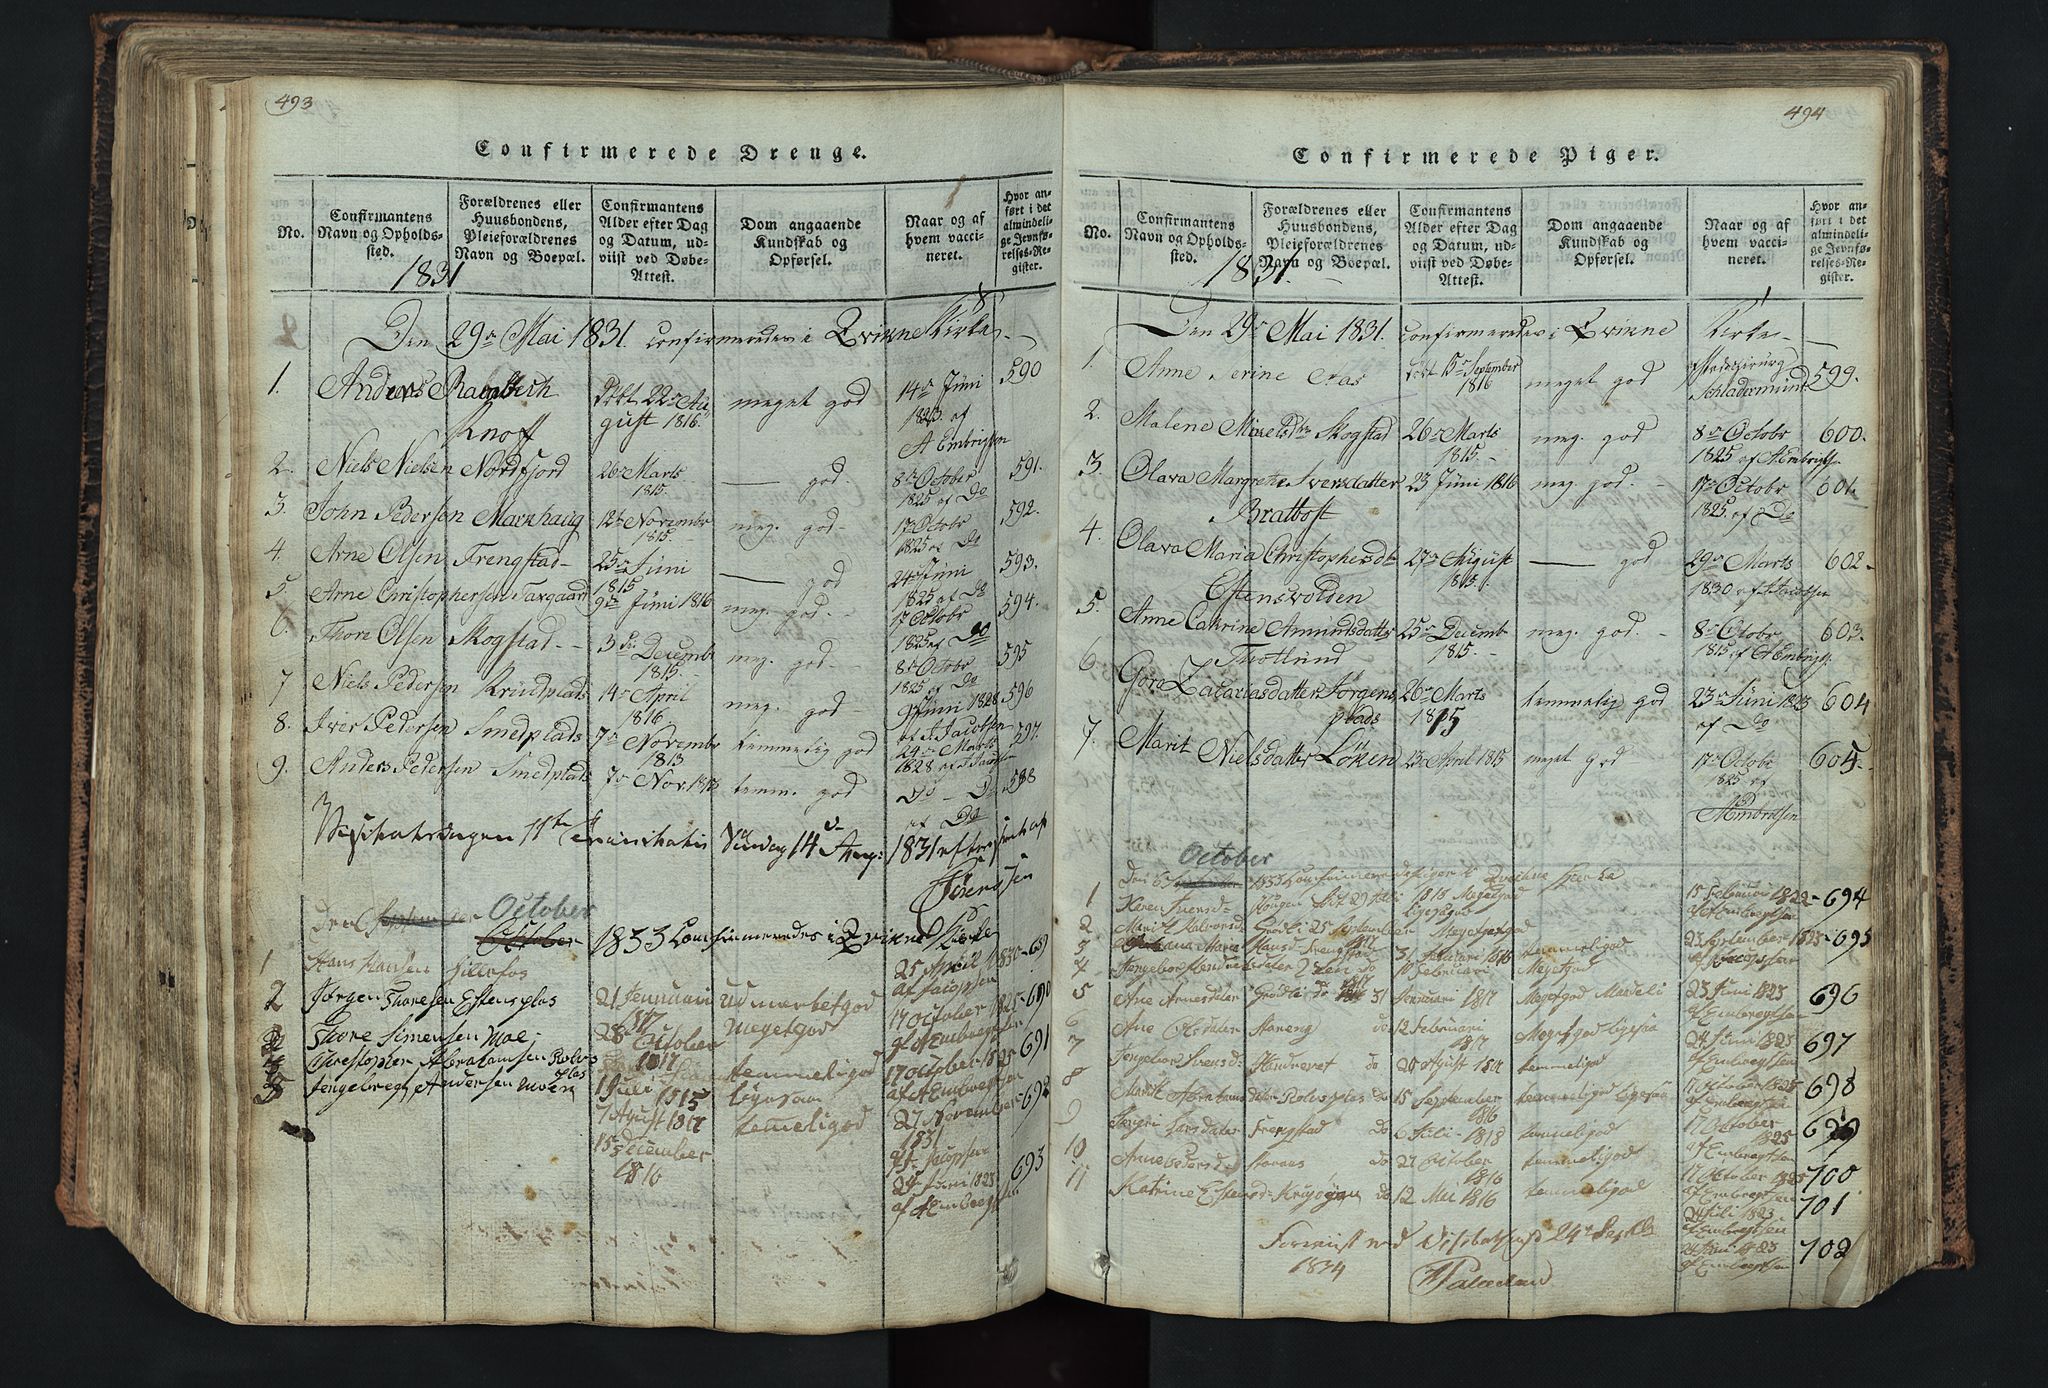 493
Confirmerede Drenge.
No.
Confirmantens Navn og Opholdssted.
Forældrenes eller Huusbondens, Pleieforældrenes Navn og Boepæl.
Confirmantens Alder efter Dag og Datum, udviist ved Døbe-Attest.
Dom angaaende Kundskab og Opførsel.
Naar og af hvem vaccineret.
Hvor anført i det almindelige Jevnførelses-Register.
1831
Den 29de Mai 1831 confirmeredes i Qvinne Kirke
1. Anders Rambech Knoff døbt 22de August 1816 meget god 14de Juni 1823 af A Embrigtsen 590
2. Niels Nielsen Nordfjord 26de Marts 1815 — god 8de October 1825 af Do 591.
3. John Pedersen Marnhaug 12te Novembr 1815 meg. god 17 Octobr 1825 af Do 592.
4. Arne Olsen Frengstad 25de Juni 1815 — god 24de Juni 1825 af Do 593.
5. Arne Christophersen Taxgaard 9de Juni 1816 meg. god 17 Octobr 1825 af Do 594.
6. Thore Olsen Skogstad 3die Decembr 1815 meg. god 8de Octobr 1825 af Do 595
7 Niels Pedersen Krudplads 14de April 1816 meg. god 9 Juni 1828 af J. Jacobsen 596
8. Iver Pedersen Smedplads 7de Novembr 1813 temmelig god 24de Marts 1828 af J Jacobsen 597.
9. Anders Pedersen Smedplads 7de Nov. 1813 temm. god Do - Do af Do 588
11te Trinitatis Søndag 14 Aug: 1831 efterseet af
Den 6 October 1833 Confirmeredes i Qvikne Kirke
1 Hans Hansen 21 Januari 1817 udmerket god 25 April 1830 af Jacopsen 689
2 Jørgen Thoresen Estensplas 28 October 1817 Meget god 17 October 1825 af A Embregtsen 690
3 Thore Simensen Moe 1 Juli 1815 temmeligod 17 October 1825 af A Embregtsen 691
4 Christopher Abrahamsen Rolvsplas 7 Agust 1817 Ligesaa 27 November 1831 af Jacopsen 692
5 Ingebregt Andersen Moen 15 December 1816 temeligod 24 Juni 1823 af A Embregtsen 693
494
Confirmerede Piger.
No.
Confirmantens Navn og Opholdssted.
Forældrenes eller Huusbondens, Pleieforældrenes Navn og Boepæl.
Confirmantens Alder efter Dag og Datum, udviist ved Døbe-Attest.
Dom angaaende Kundskab og Opførsel.
Naar og af hvem vaccineret.
Hvor anført i det almindelige Jevnførelses-Register.
1831.
Den 29de Mai 1831. confirmeredes i Qvinne Kirke
1. Anne Serine Aas døbt 15de September 1816 meget god 599.
2. Malene Mikelsdtr Skogstad 26de Marts 1815. meg. god 8de Octobr 1825 af A Embrigts. 600.
3. Olava Margrethe Iversdatter Brattost 23 Juni 1816 meg. god. 17de Octobr 1825. af Do 601.
4. Olava Maria Christophersdtr Estensvolden 27de August 1815. — god 29de Marts 1830 af J Jacobsen 602.
5. Anne Catrine Amundsdatter Thotlund 25de Decembr 1815. meg. god. 8de Octobr 1815 af A Embrigts. 603.
6 Goro Zacariasdatter Jørgensplads 26de Marts 1815 temmelig god 23de Juni 1823 af Do 604
7. Marit Nielsdatter Løken 23de April 1815 meget god 17de Octobr 1825 af A Embrigtsen 605.
Den 6 October 1833 Confirmeredes Piger i Qvikne Kirke
1 Karen Iversd Hougen 1818 Megetgod 15 Februari 1822 af A Embregtsen 694
2 Marit Halvorsd Grødli 25 September Megetgod 23 September 1823 af Jacopsen 695
3 Maren Hansd 31 Januari 1816 temmeligod
4 Ingebor Hendriksdater do 10 Februari Megetgod
5 Ane Arnesdater Grødli do 31 Januari 1817 Megetgod 23 Juni 1823 af Embregtsen 696
6 Ane Olsdater Storeng do 12 Februari 1817 Megetgod Ligesaa 24 Juni 1825 af Embregtsen 697
7 Ingebor Svensd do 20 Agust temmeligod 17 October 1825 af Embregtsen 698
8 Marit Abrahamsdater Rolvsplas do 15 September 1816 temmeligod Ligesaa 17 October 1825 af Embregtsen 699
9 Larsdater Frengstad do 6 Juli 1818 temmeligod 17 October 1825 af Embregtsen 700
10 Anne Pedersd do 27 October 1816 temmeligod 24 Juli 1823 af Embregtsen 701
11 Katrine Estensd do 12 Mai 1816 temmeligod 24 Juni 1823 af Embregtsen 702
ved Visitatsen d 24de Septbr 1834